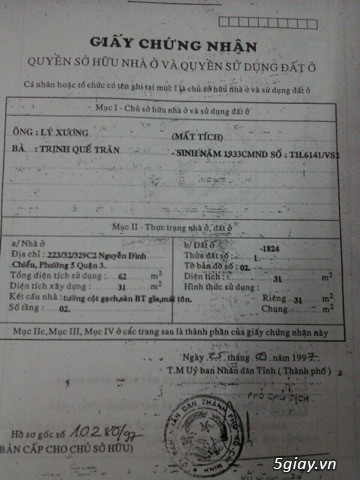 GIẤY CHỨNG NHẬN
QUYỀN SỞ HỮU NHÀ Ở VÀ QUYỀN SỬ DỤNG ĐẤT Ở
Cá nhân hoặc tổ chức có tên ghi tại mục I là chủ sở hữu nhà ở và sử dụng đất ở
Mục I - Chủ sở hữu nhà ở và sử dụng đất ở
ÔNG : LÝ XƯƠNG (MẤT TÍCH)
BÀ : TRỊNH QUẾ TRÂN - SINH NĂM 1933 CMND SỐ : TH.6141/VS2
Mục II - Thực trạng nhà ở, đất ở
a/ Nhà ở
Địa chỉ : 223/32/329C2 Nguyễn Đình
Chiểu, Phường 5 Quận 3.
Tổng diện tích sử dụng : 62 m2
Diện tích xây dựng : 31 m2
Kết cấu nhà : tường cột gạch, sàn BT gỉa, mái tôn.
Số tầng : 02.
b/ Đất ở -1824
Thửa đất số : 1
Tờ bản đồ số : 02.
Diện tích : 31 m2
Hình thức sử dụng :
Riêng 31 m2
Chung m2
Mục IIc, Mục III, Mục IV ở các trang sau là thành phần của giấy chứng nhận này
Ngày 25 tháng năm 1997
T.M Uỷ ban Nhân dân Tỉnh (Thành phố)
PHÓ CHỦ TỊCH
Hồ sơ gốc số 10280/97
(BẢN CẤP CHO CHỦ SỞ HỮU)
5giay.vn